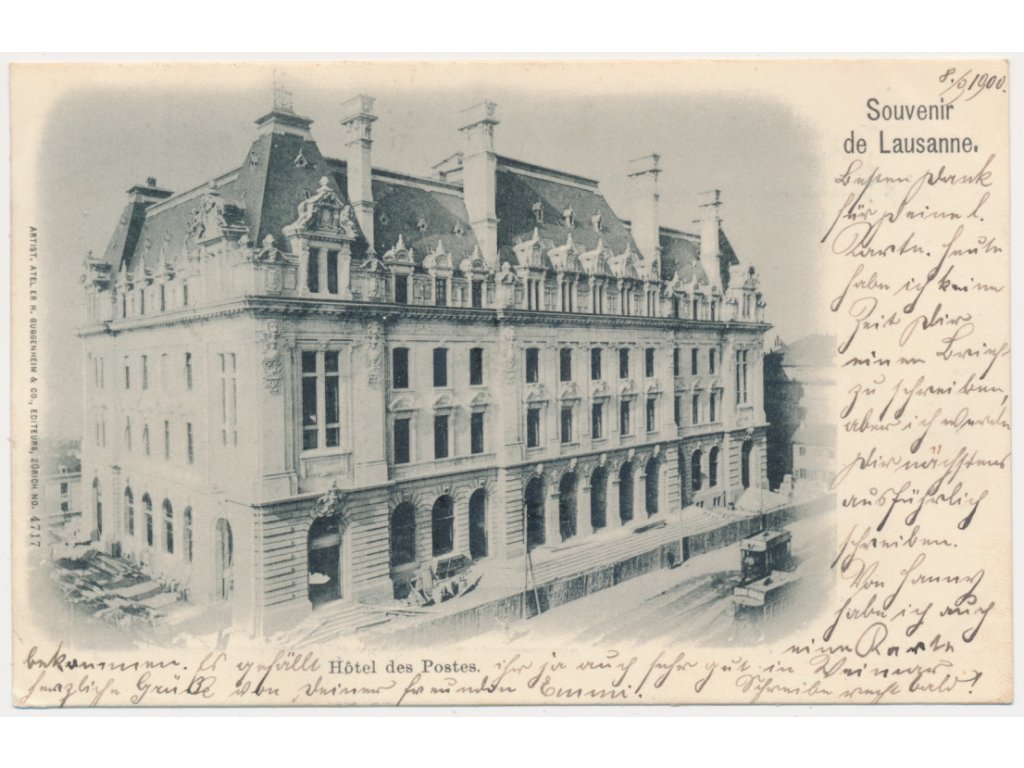 8./9 1900.
Souvenir
de Lausanne.
Besten Dank
für Deine l.
Karte. Heute
habe ich keine
Zeit Dir
einen Brief
zu schreiben,
aber ich werde
Dir nächstens
ausführlich
schreiben.
Von Hanny
habe ich auch
eine Karte
bekommen. Es gefällt
Hôtel des Postes.
ihr ja auch sehr gut in Weimar.
herzliche Grüße von Deiner Freundin Emmi.
Schreibe recht bald!
ARTIST. ATELIER H. GUGGENHEIM & CO., EDITEURS, ZÜRICH NO. 4717